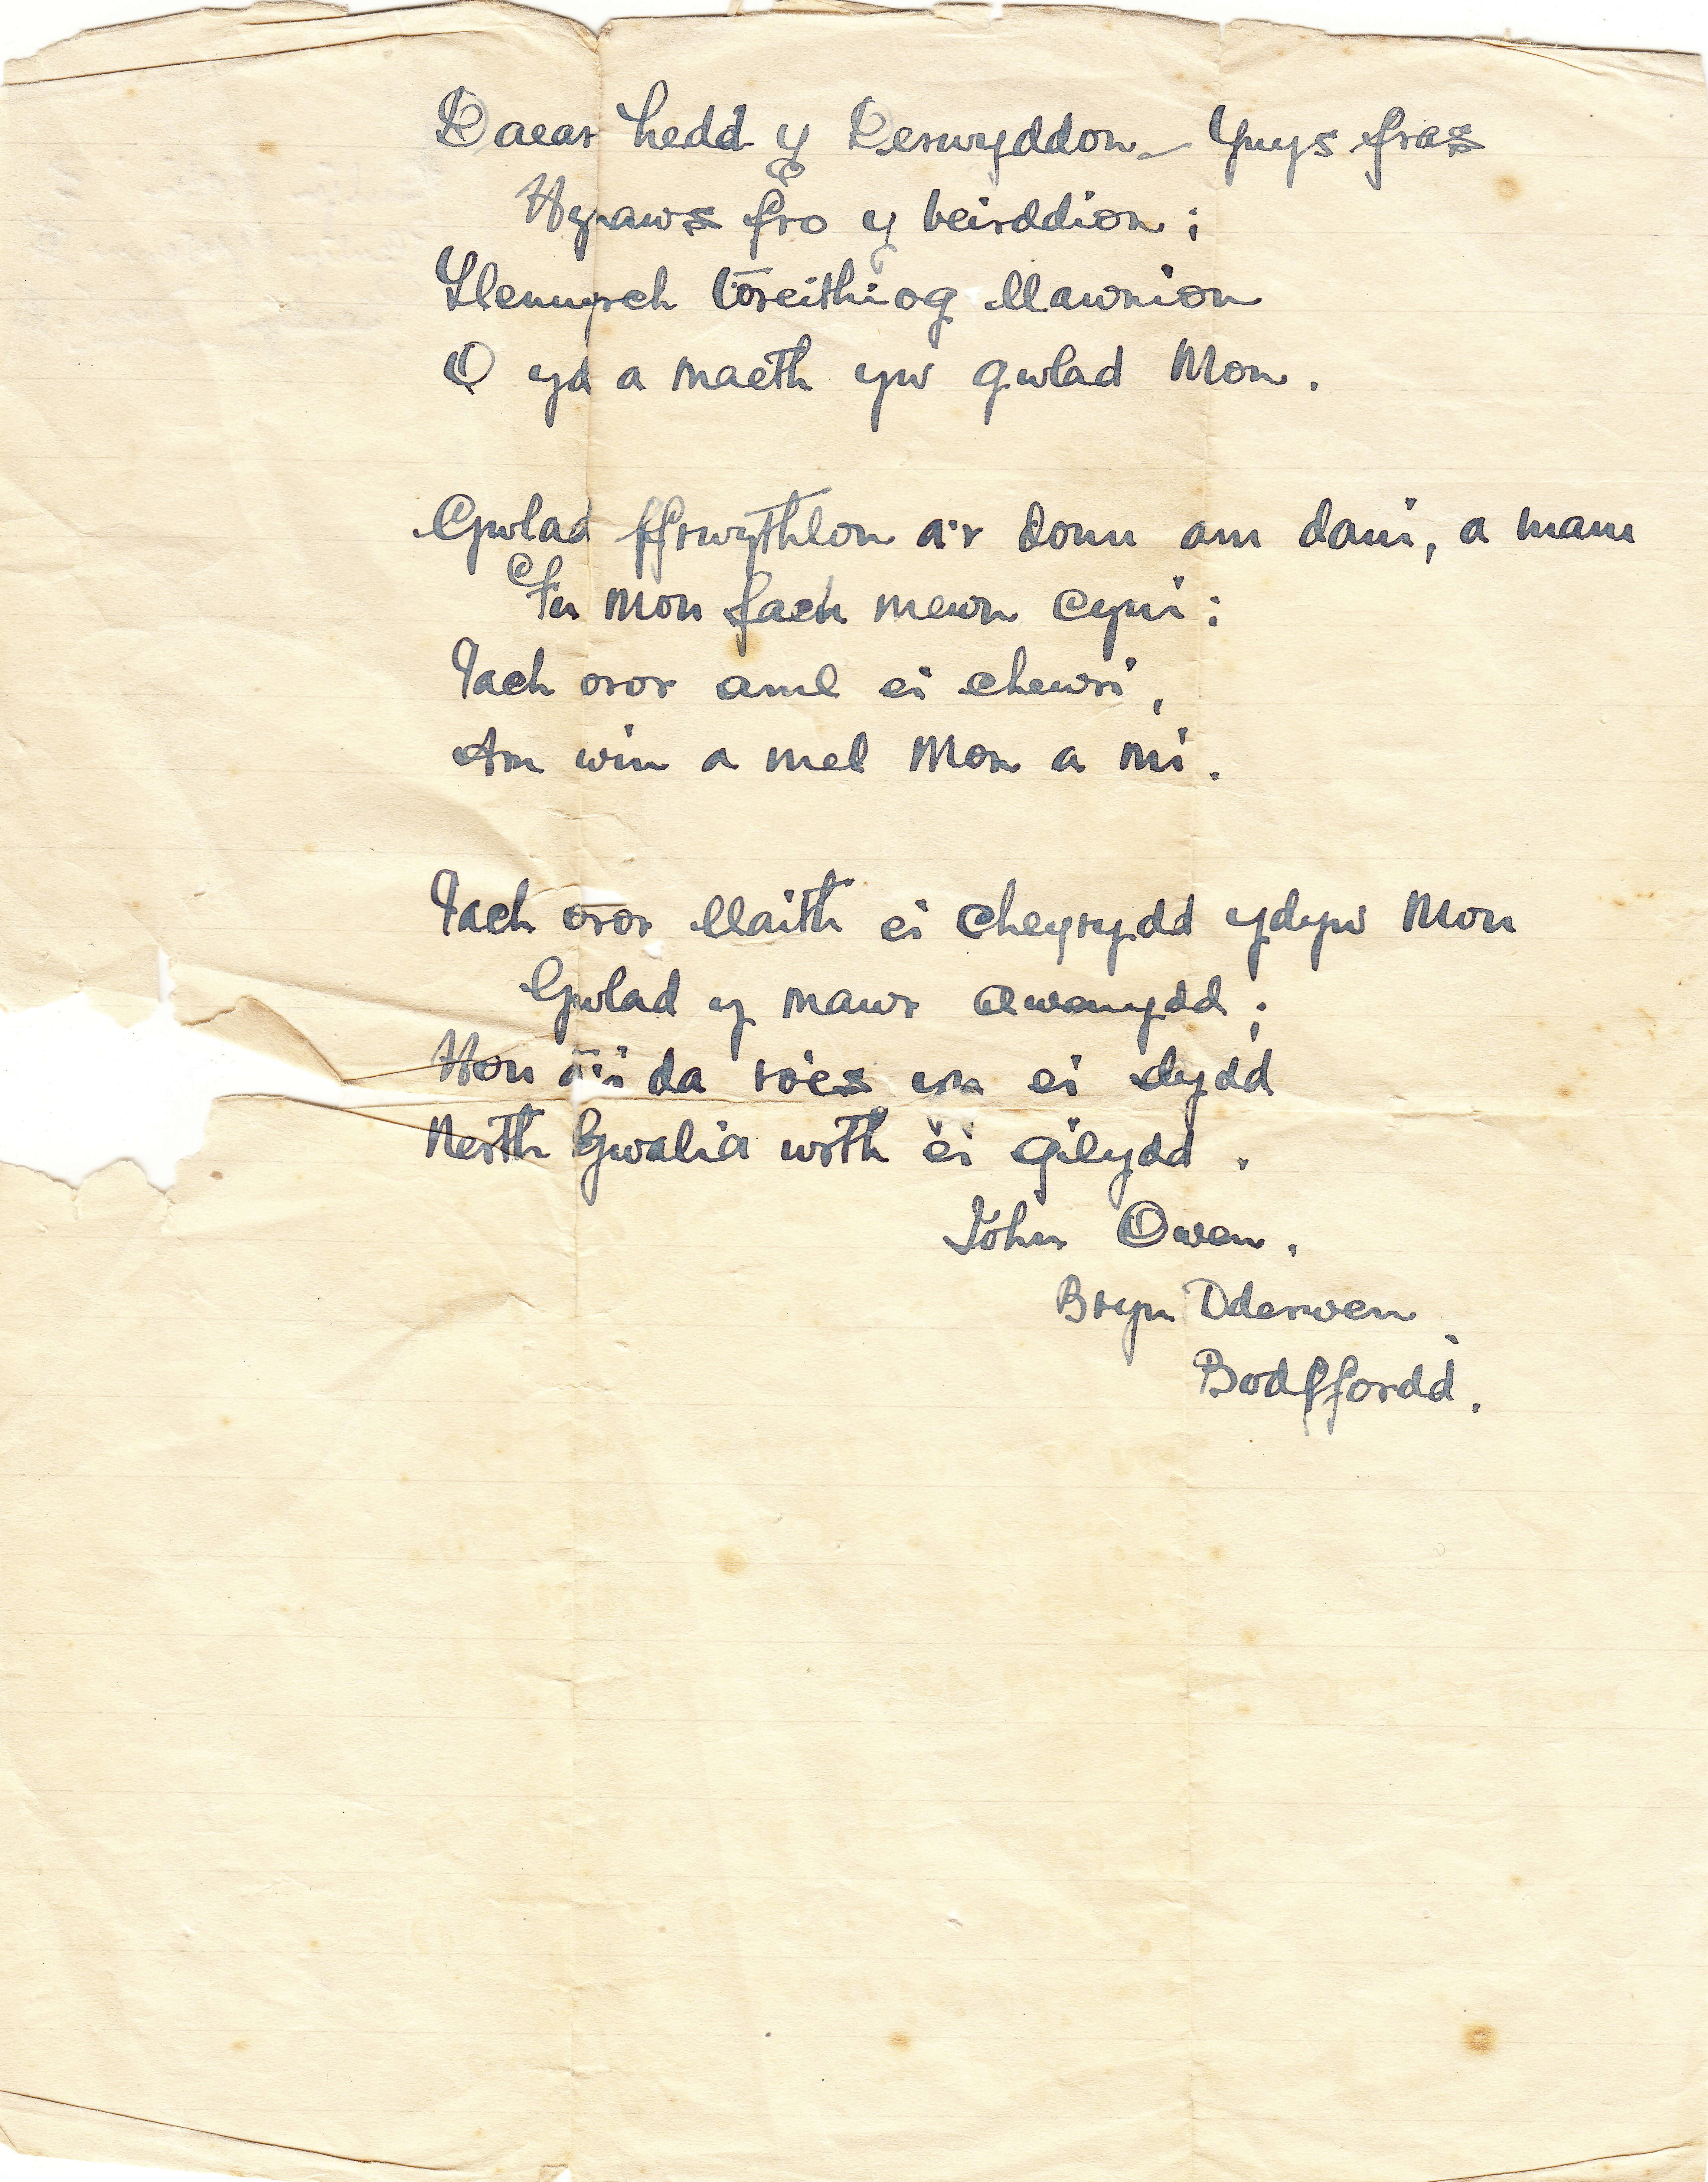 Daear hedd y Derwyddon – Ynys fras
Hynaws fro y beirddion;
Llennyrch toreithiog llawnion
O yd a maeth yw gwlad Mon.
Gwlad ffrwythlon a'r donn am dani, a mam
Fu Mon fach mewn cyni;
Iach oror aml ei chewri,
Am win a mel Mon a mi.
Iach oror llaith ei cheyrydd ydyw Mon
Gwlad y mawr awenydd;
Hon a'i da roes yn ei dydd
Nerth Gwalia wrth ei gilydd.
John Owen.
Bryn Dderwen
Bodffordd.